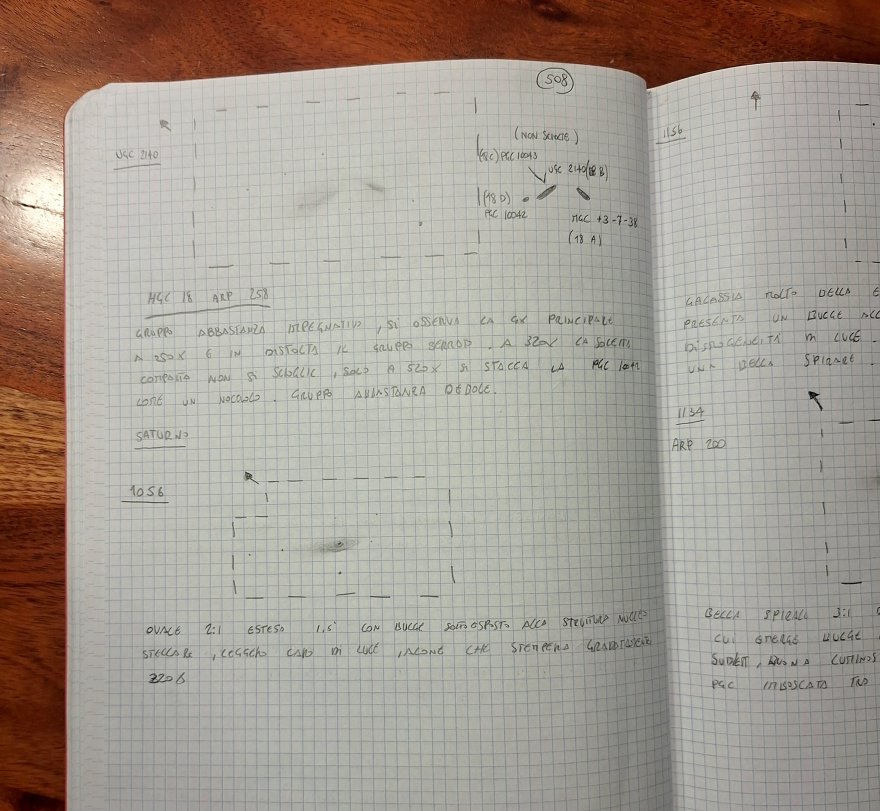 508
UGC 2140
(NON SCIOLTE)
PGC 10043
UGC 2140
(18 D)
PGC 10042
MGC +3-7-38
(18 A)
HGC 18 ARP 258
GRUPPO ABBASTANZA IMPEGNATIVO, SI OSSERVA LA GX PRINCIPALE
A 250X E IN DISTOLTA IL GRUPPO SERRATO. A 320X LA SOLCITA
COMPATTA NON SI SCIOGLIE, SOLO A 520X SI STACCA LA PGC 10042
COME UN NOCCIOLO. GRUPPO ABBASTANZA DEBOLE.
SATURNO
1056
OVALE 2:1 ESTESO 1,5' CON BULGE SOTTOESPOSTO ALLA STRUTTURA NUCLEO
STELLARE, LEGGERO CALO DI LUCE, ALONE CHE STEMPERA GRADATAMENTE
2206
1156
GALASSIA MOLTO BELLA E
PRESENTA UN BULGE ALL
DISOMOGENEITÀ DI LUCE
UNA BELLA SPIRALE.
1134
ARP 200
BELLA SPIRALE 3:1
CUI EMERGE BULGE
SUDEST, BUONA LUMINOS
PGC IMBOSCATA TRA